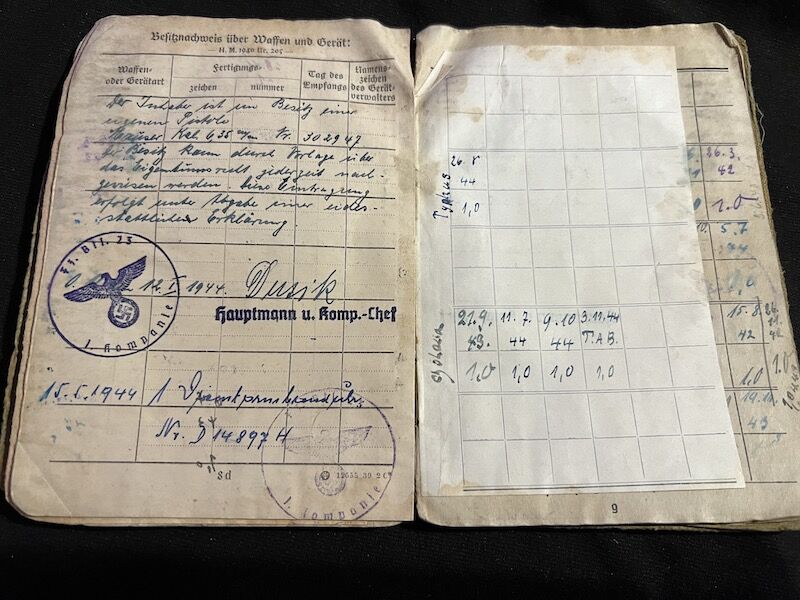 Besitznachweis über Waffen und Gerät:
H. M. 1940 Nr. 205
Waffen- oder Geräteart
Fertigungs-
zeichen
nummer
Tag des Empfangs
Namens- zeichen des Gerät- verwalters
Der Inhaber ist im Besitz einer
eigenen Pistole
Mauser Kal. 6,35 m/m Nr. 302947
Der Besitz kann durch Vorlage über
das Eigentumsrecht jederzeit nach-
gewiesen werden. Diese Eintragung
erfolgt unter Abgabe einer eides-
stattlichen Erklärung.
Btl. 23
1. Kompanie
12. I. 1944.
Hauptmann u. Komp.-Chef
15. I. 1944 1
Nr. D 14897 H
Sd
1. Kompanie
Typhus
26. 8
44
1,0
Cholera
21.9. 11. 7. 9. 10 3.11.44
43. 44 44 T.A.B.
1,0 1,0 1,0 1,0
26. 3.
42
1.0
5. 7
15. 8
42
1,0
19. 11.
43
9